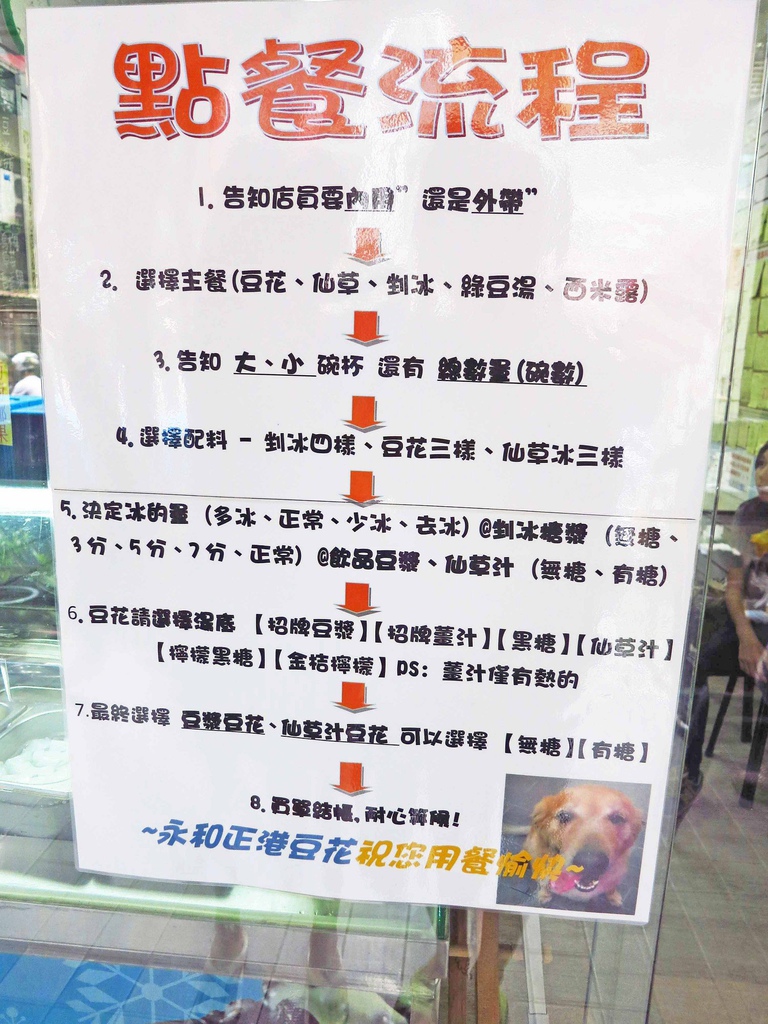 點餐流程
1. 告知店員要內用” 還是外帶”
2. 選擇主餐(豆花、仙草、剉冰、綠豆湯、西米露)
3. 告知 大、小 碗杯 還有 總數量(碗數)
4. 選擇配料 - 剉冰四樣、豆花三樣、仙草冰三樣
5. 決定冰的量 (多冰、正常、少冰、去冰) @剉冰糖漿 (無糖、
3分、5分、7分、正常) @飲品豆漿、仙草汁 (無糖、有糖)
6. 豆花請選擇湯底 【招牌豆漿】【招牌薑汁】【黑糖】【仙草汁】
【檸檬黑糖】【金桔檸檬】PS: 薑汁僅有熱的
7.最終選擇 豆漿豆花、仙草汁豆花 可以選擇 【無糖】【有糖】
8. 買單結帳, 耐心等候!
~永和正港豆花祝您用餐愉快~